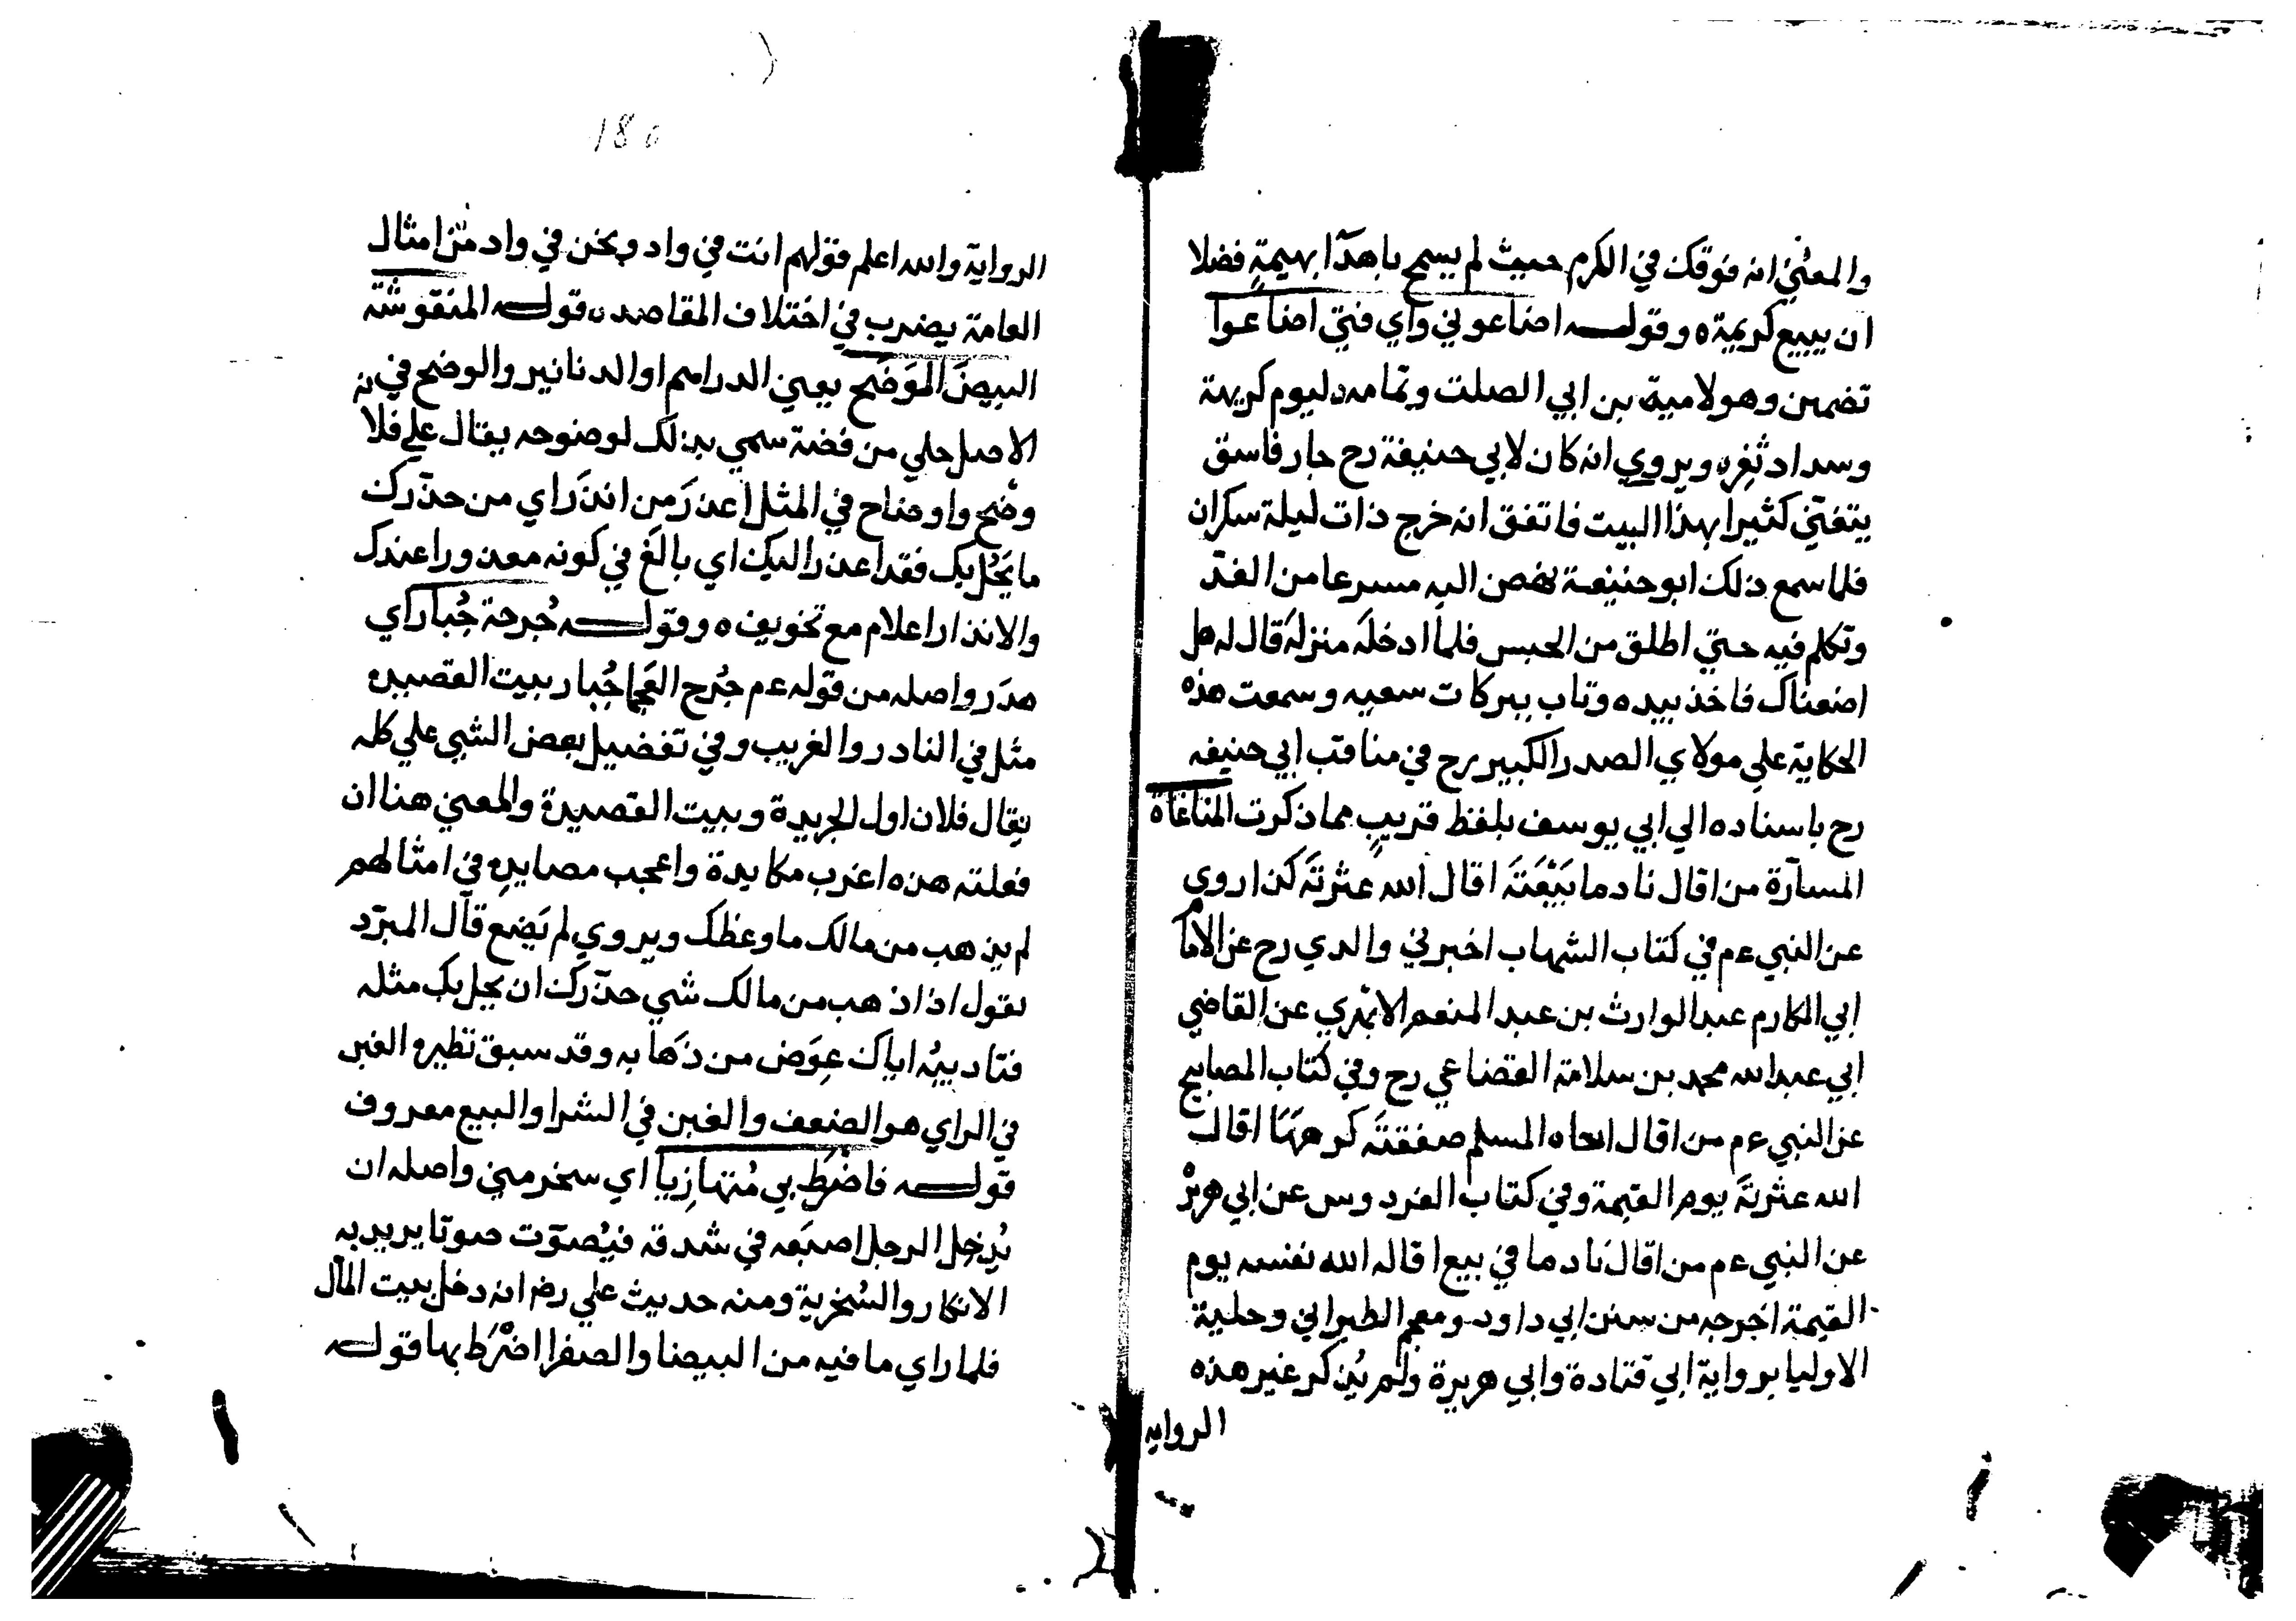 والمعني انه فوقك في الكرم حيث لم يسمح باهدآ بهيمةٍ فضلا
ان يبيع كريمة ه وقولـــه اضاعوني واي فتي اضاعوا
تضمين وهو لامية بن ابي الصلت وتمامه ليوم كريهة
وسداد ثغر ه ويروي انه كان لابي حنيفة رح جار فاسق
يتغني كثيرا بهذا البيت فاتفق انه خرج ذات ليلة سكران
فلما سمع ذلك ابو حنيفة نهض اليه مسرعا من الغد
وتكلم فيه حتي اطلق من الحبس فلما ادخله منزله قال له هل
اضعناك فاخذ بيده وتاب ببركات سعيه وسمعت هذه
الحكاية علي مولاي الصدر الكبير رح في مناقب ابي حنيفه
رح باسناده الي ابي يوسف بلفظ قريبٍ مما ذكرت المناغاة
المسآرة من اقال نادما بَيْعَتَهَ اقال الله عثرتَه كذا روي
عن النبي ءم في كتاب الشهاب اخبرني والدي رح عن الامام
ابي المكارم عبد الوارث بن عبد المنعم الابهري عن القاضي
ابي عبدالله محمد بن سلامة القضاعي رح وفي كتاب المصابيح
عن النبي ءم من اقال اخاه المسلم صفقتَه كرهَهَا اقال
الله عثرتَه يوم القيمة وفي كتاب الفردوس عن ابي هريرة
عن النبي ءم من اقال نادما في بيع اقاله الله نفسه يوم
القيمة اخرجه من سنن ابي داود ومعجم الطبراني وحلية
الاوليا برواية ابي قتادة وابي هريرة ولم يُذكر غير هذه
الروايه
180
الرواية والله اعلم قولهم انت في واد ونحن في واد من امثال
العامة يضرب في اختلاف المقاصد ه قولـــه المنقوشة
البيضَ الموَضَح يعني الدراهم او الدنانير والوضح في
الاصل حلي من فضة سمي بذلك لوضوحه يقال علي فلان
وضح واوضاح في المثل اعذَرَ من انذَرَ اي من حذّرك
ما يَحُلّ بك فقد اعذر اليك اي بالغَ في كونه معذورا عندك
والانذار اعلام مع تخويف ه وقولـــه جُرحة جُبار اي
هدَر واصله من قوله ءم جُرح العَجما جُبار بيت القصيده
مثل في النادر والغريب وفي تفضيل بعض الشي علي كله
يقال فلان اول الجريدة وبيت القصيدة والمعني هنا ان
فعلته هذه اغرب مكايدة واعجب مصايده في امثالهم
لم يذهب من مالك ما وعظك ويروي لم يَضِع قال المبرّد
يقول اذا ذهب من مالك شي حذّرك ان يحل بك مثله
فتاديبُه اياك عِوَض من ذَهابه وقد سبق نظيره الغبن
في الراي هو الضعف والغبن في الشرا والبيع معروف
قولـــه فاضْرَط بي مُتهازِيا اي سخر مني واصله ان
يُدخِل الرجل اصبَعه في شدقه فيُصوّت صوتا يريد به
الانكار والسُخرية ومنه حديث علي رضـ انه دخل بيت المال
فلما راي ما فيه من البيضا والصفرا اضْرَط بها قولـــه